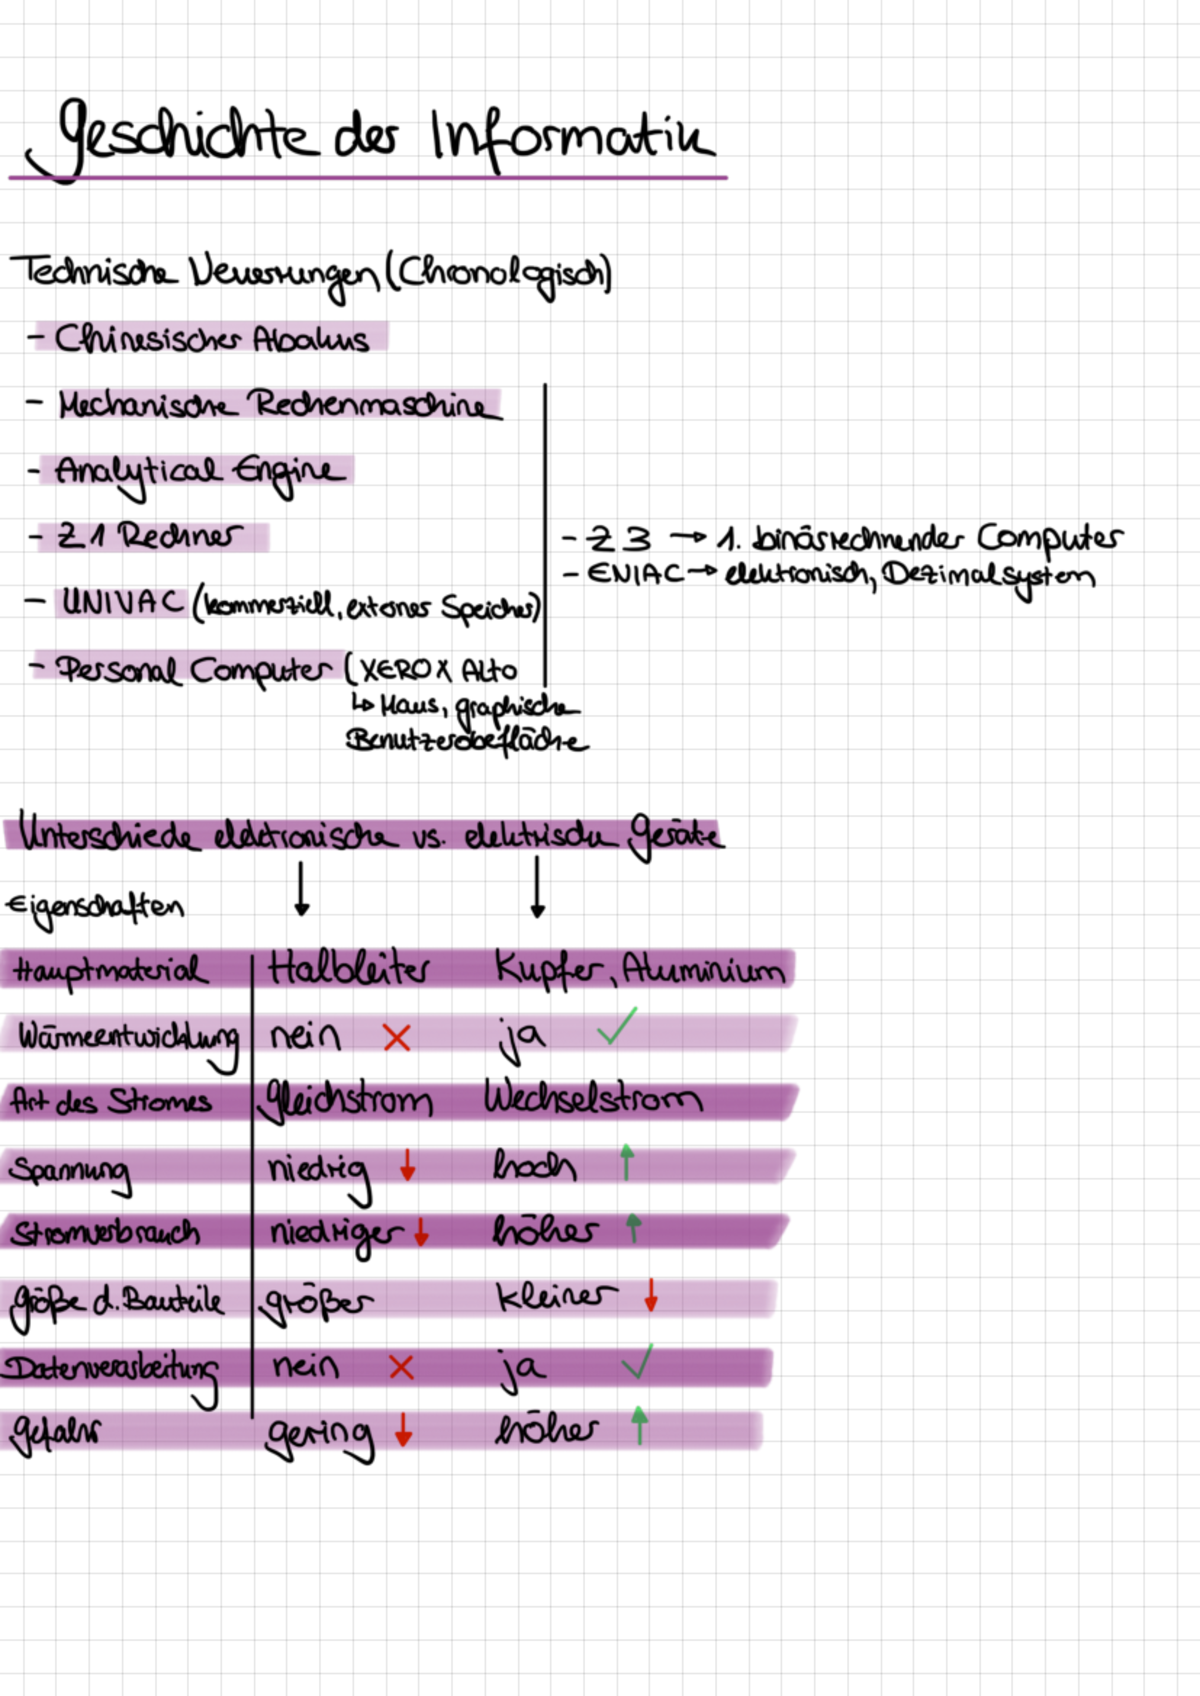 Geschichte der Informatik
Technische Neuerungen (Chronologisch)
- Chinesischer Abakus
- Mechanische Rechenmaschine
- Analytical Engine
- Z1 Rechner
- Z3 → 1. binärrechnender Computer
- ENIAC → elektronisch, Dezimalsystem
- UNIVAC (kommerziell, externer Speicher)
- Personal Computer (XEROX Alto
↳ Maus, graphische
Benutzerobefläche
Unterschiede elektronische vs. elektrische Geräte
↓ ↓
Eigenschaften
Hauptmaterial Halbleiter Kupfer, Aluminium
Wärmeentwicklung nein ✗ ja ✓
Art des Stromes Gleichstrom Wechselstrom
Spannung niedrig ↓ hoch ↑
Stromverbrauch niedriger ↓ höher ↑
Größe d. Bauteile größer kleiner ↓
Datenverarbeitung nein ✗ ja ✓
Gefahr gering ↓ höher ↑